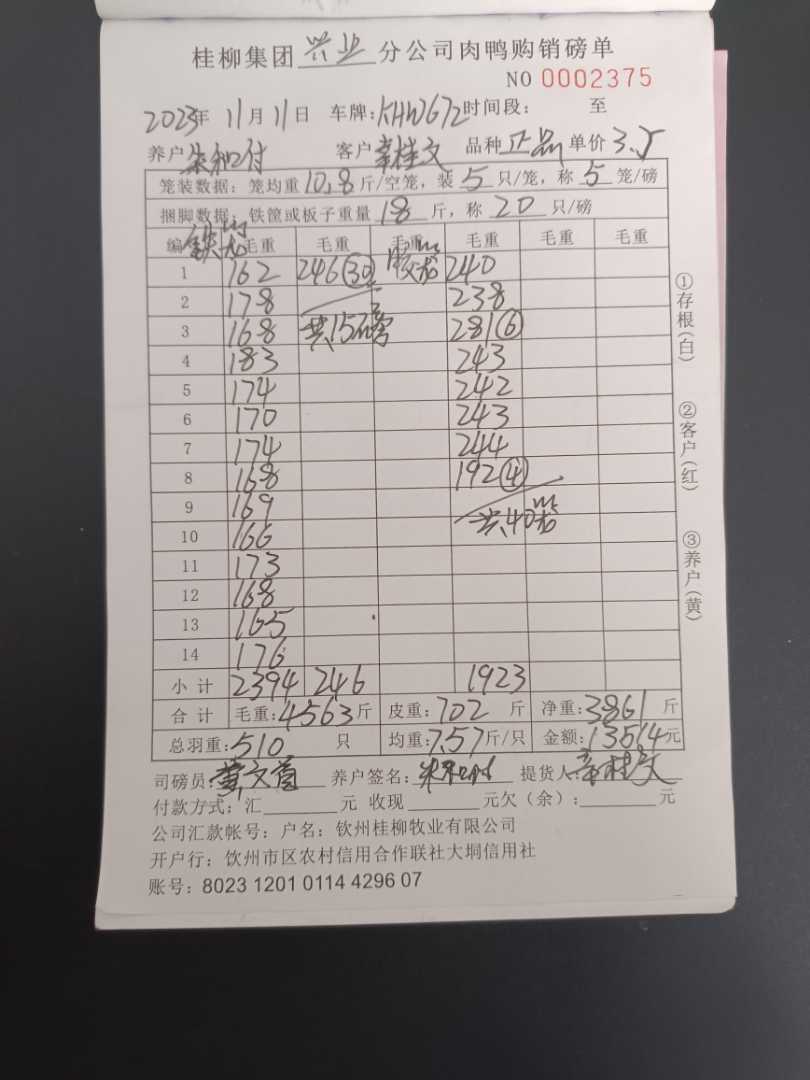 桂柳集团 兴业 分公司肉鸭购销磅单
NO 0002375
2023年 11月 11日 车牌:KHW672 时间段: 至
养户 朱和付 客户 韦桂文 品种 正品 单价 3.5
笼装数据: 笼均重 10.8 斤/空笼, 装 5 只/笼, 称 5 笼/磅
捆脚数据: 铁筐或板子重量 18 斤, 称 20 只/磅
编 铁笼 毛重 毛重 毛重 胶笼 毛重 毛重 毛重
1 162 246(30) 240
2 178 238
3 168 共15磅 281(6)
4 183 243
5 174 242
6 170 243
7 174 244
8 168 192(4)
9 169
10 166 共40笼
11 173
12 168
13 165
14 176
小计 2394 246 1923
合计 毛重:4563斤 皮重:702斤 净重:3861斤
总羽重:510 只 均重:7.57斤/只 金额:13514元
司磅员: 黄文 养户签名: 朱和付 提货人: 韦桂文
付款方式: 汇 元 收现 元欠(余): 元
公司汇款帐号: 户名: 钦州桂柳牧业有限公司
开户行: 饮州市区农村信用合作联社大垌信用社
账号: 8023 1201 0114 4296 07
①存根(白)
②客户(红)
③养户(黄)